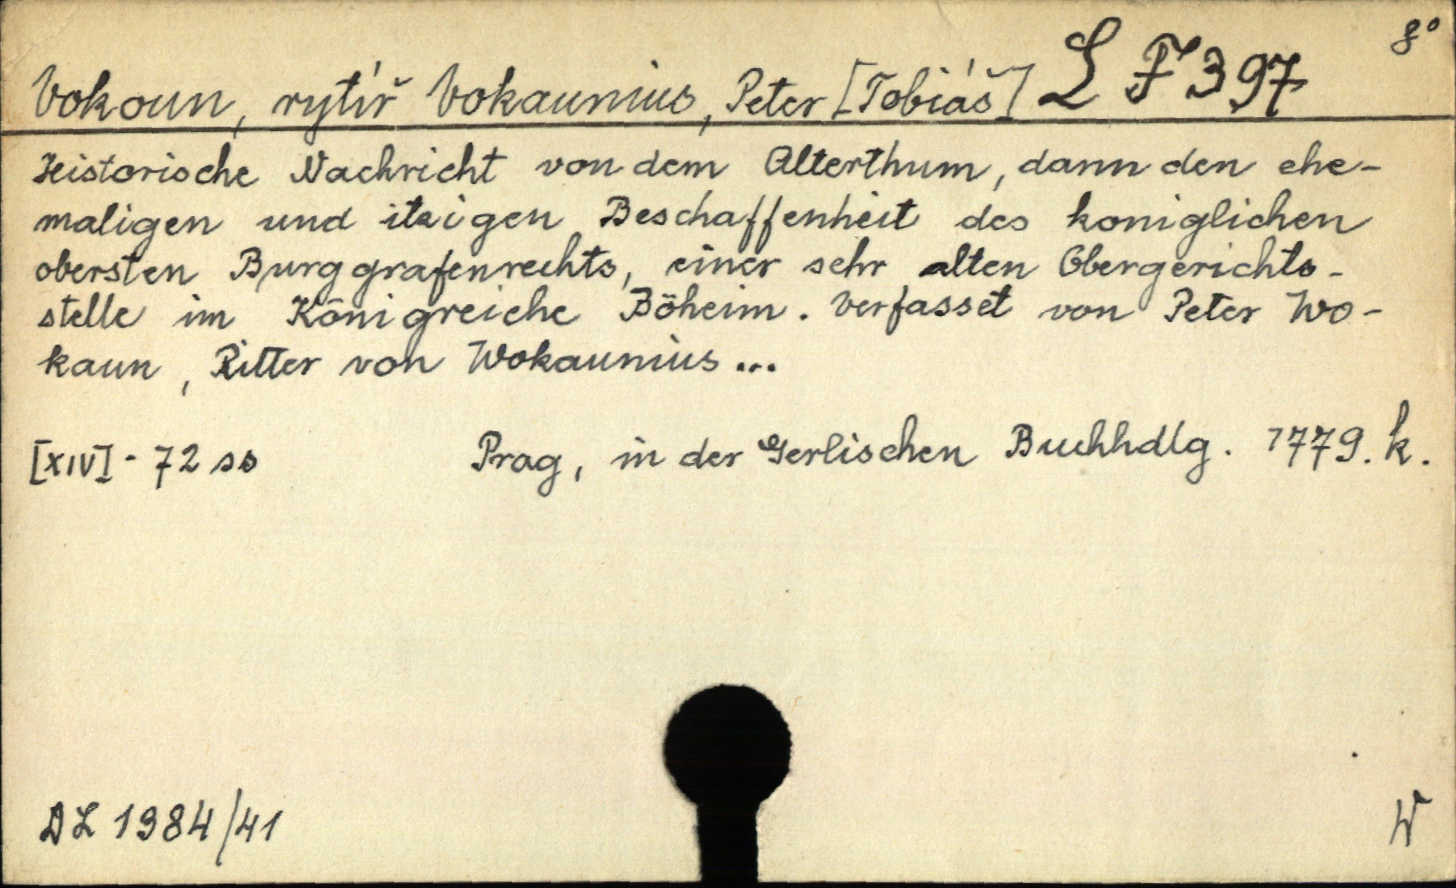 Vokoun, rytíř Vokaunius, Peter [Tobiáš] L F 397 8°
Historische Nachricht von dem Alterthum, dann den ehe-
maligen und itzigen Beschaffenheit des koniglichen
obersten Burggrafenrechts, einer sehr alten Obergerichts-
stelle im Königreiche Böheim. Verfasset von Peter Wo-
kaun, Ritter von Wokaunius...
[XIV] - 72 ss Prag, in der Gerlischen Buchhdlg. 1779. k.
DL 1984/41 W